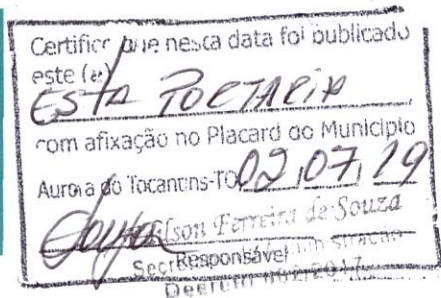 Certifico que nesta data foi publicado
este (a)
ESTA PORTARIA
com afixação no Placard do Município
Aurora do Tocantins-TO 02,07,19
ilson Ferreira de Souza
Responsável
Decreto 001/2017